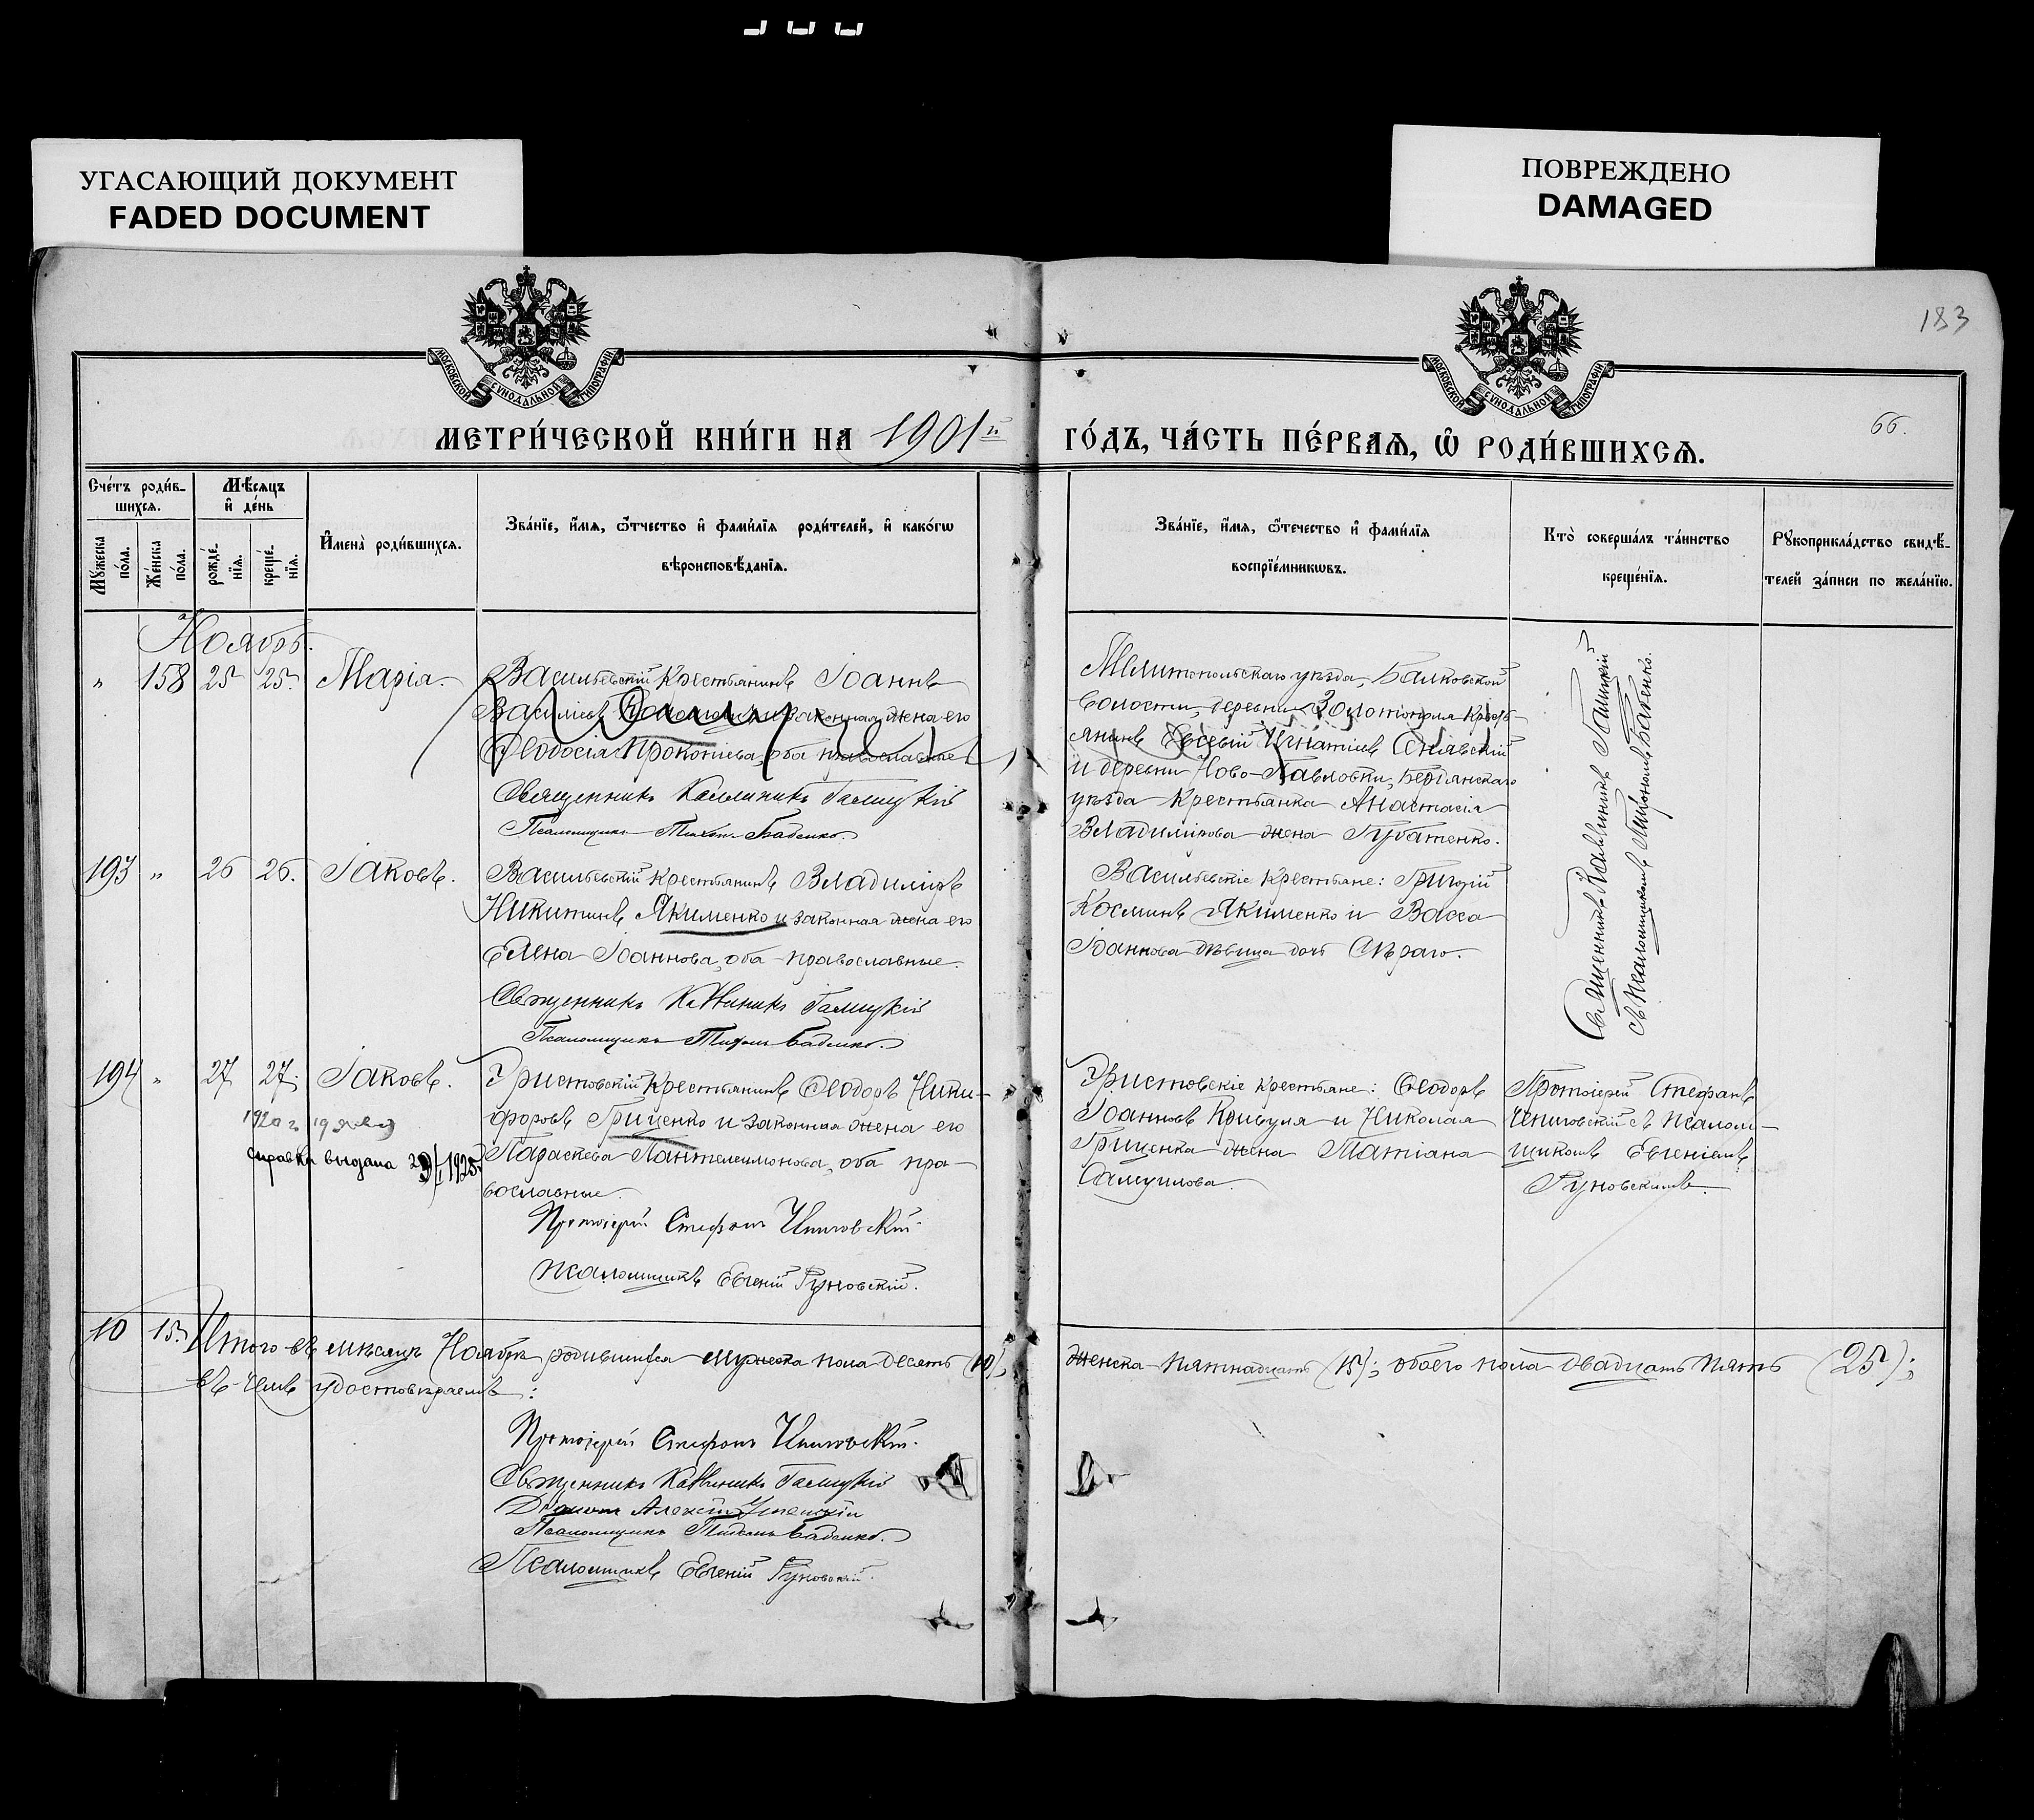 УГАСАЮЩИЙ ДОКУМЕНТ
FADED DOCUMENT
ПОВРЕЖДЕНО
DAMAGED
183
МОСКОВСКОЙ СѴНОДАЛЬНОЙ ТИПОГРАФІИ
МОСКОВСКОЙ СѴНОДАЛЬНОЙ ТИПОГРАФІИ
66.
МЕТРИ́ЧЕСКОЙ КНИ́ГИ НА 1901й ГО́ДЪ, ЧА́СТЬ ПЕ́РВАѦ, Ѡ РОДИ́ВШИХСѦ.
Сче́тъ роди́в-
шихся.
Мѣ́сяцъ
и̂ де́нь
Му́жеска по́ла.
Же́нска по́ла.
рожде́-
нїя.
креще́-
нїя.
И̂мена̀ роди́вшихся.
Зва́нїе, и̂мя, ѻ̂тчество и̂ фами́лїя роди́телей, и̂ како́гѡ
вѣроисповѣ́данїя.
Зва́нїе, и̂мя, ѻ̂течество и̂ фами́лїя
воспрїе́мникѡвъ.
Кто̀ соверша́лъ та́инство
креще́нїя.
Рꙋкоприкла́дство свидѣ́-
телей за́писи по жела́нїю.
Ноябрь.
" 158 25 25. Марія.
Васильевскій крестьянинъ Іоаннъ
законная жена его
Ѳеодосія Прокопіева, оба православные
Священникъ Каллиникъ Галицкій
Псаломщикъ Тихонъ Баденко.
Мелитопольскаго уѣзда, Балковской
волости, деревни
янинъ Евсевій Игнатіевъ
и деревни Ново-Павловки, Бердянскаго
уѣзда крестьянка Анастасія
Владимірова жена Губатенко.
Священникъ Каллиникъ Галицкій
съ псаломщикомъ Тихономъ Баденко.
193 " 26 26. Іаковъ.
Васильевскій крестьянинъ Владиміръ
Никитинъ Якименко и законная жена его
Елена Іоаннова, оба православные.
Священникъ Каллиникъ Галицкій
Псаломщикъ Тихонъ Баденко.
Васильевскіе крестьяне: Григорій
Косминъ Якименко и Васса
Іоаннова дѣвица дочь Сѣраго.
194 " 27 27. Іаковъ.
1920 г. 19
справка выдана 1925
Христовскій крестьянинъ Ѳеодоръ Ники-
форовъ Гриценко и законная жена его
Параскева Пантелеимонова, оба пра-
вославные.
Протоіерей Стефанъ
псаломщикъ Евгеній Руновскій.
Христовскіе крестьяне: Ѳеодоръ
Іоанновъ Кривуля и Николая
Гриценка жена Татіана
Самуилова.
Протоіерей Стефанъ
съ псалом-
щикомъ Евгеніемъ
Руновскимъ.
10 15. Итого въ мѣсяцѣ Ноябрѣ родившихся мужеска пола десять (10), женска пятнадцать (15); обоего пола двадцать пять (25);
въ чемъ удостовѣряемъ:
Протоіерей Стефанъ
Священникъ Каллиникъ Галицкій
Діаконъ Алексій
Псаломщикъ Тихонъ Баденко.
Псаломщикъ Евгеній Руновскій.